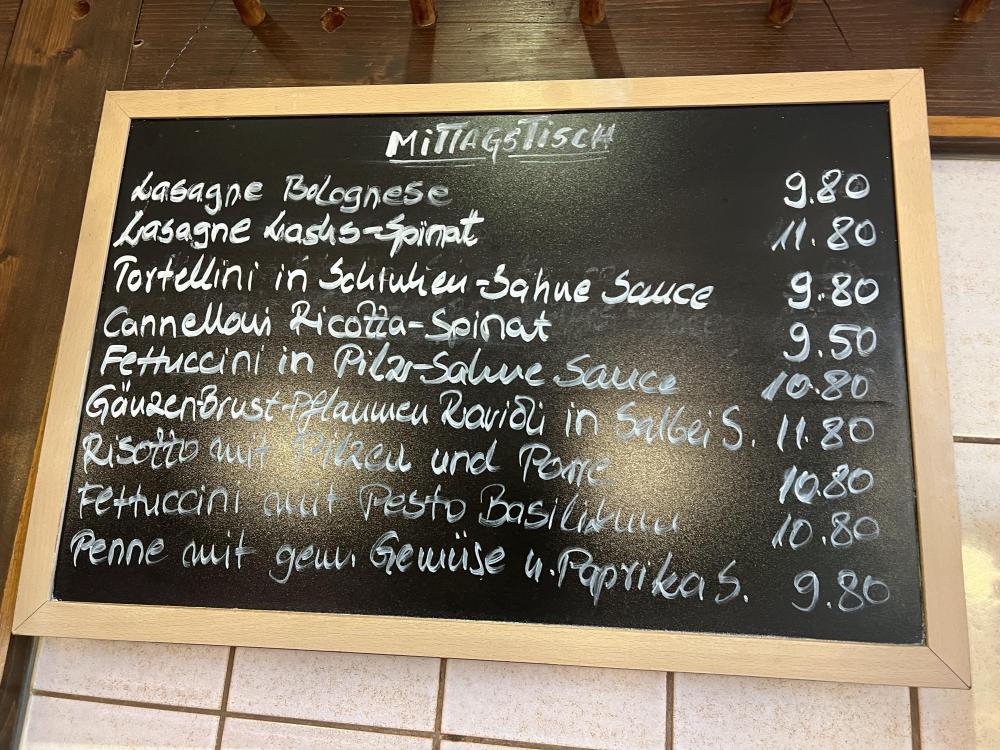 MITTAGSTISCH
Lasagne Bolognese 9.80
Lasagne Lachs-Spinat 11.80
Tortellini in Schinken-Sahne Sauce 9.80
Cannelloni Ricotta-Spinat 9.50
Fettuccini in Pilz-Sahne Sauce 10.80
GänzenBrust-Pflaumen Ravioli in Salbei S. 11.80
Risotto mit Pilzen und Porre 10.80
Fettuccini mit Pesto Basilikum 10.80
Penne mit gem. Gemüse u. Paprika S. 9.80